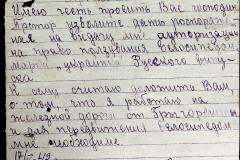 Имею честь просить Вас господин
Претор изволите дать распоряж.
ная выдачу мне ауторизации
на право пользования велосипедом
марки "Украина" Русского выпу-
ска.
К сему считаю доложить Вам,
о том, что я работаю на
железной дороге от Григорены
и для передвижения велосипед
мне необходимо
17/I-42